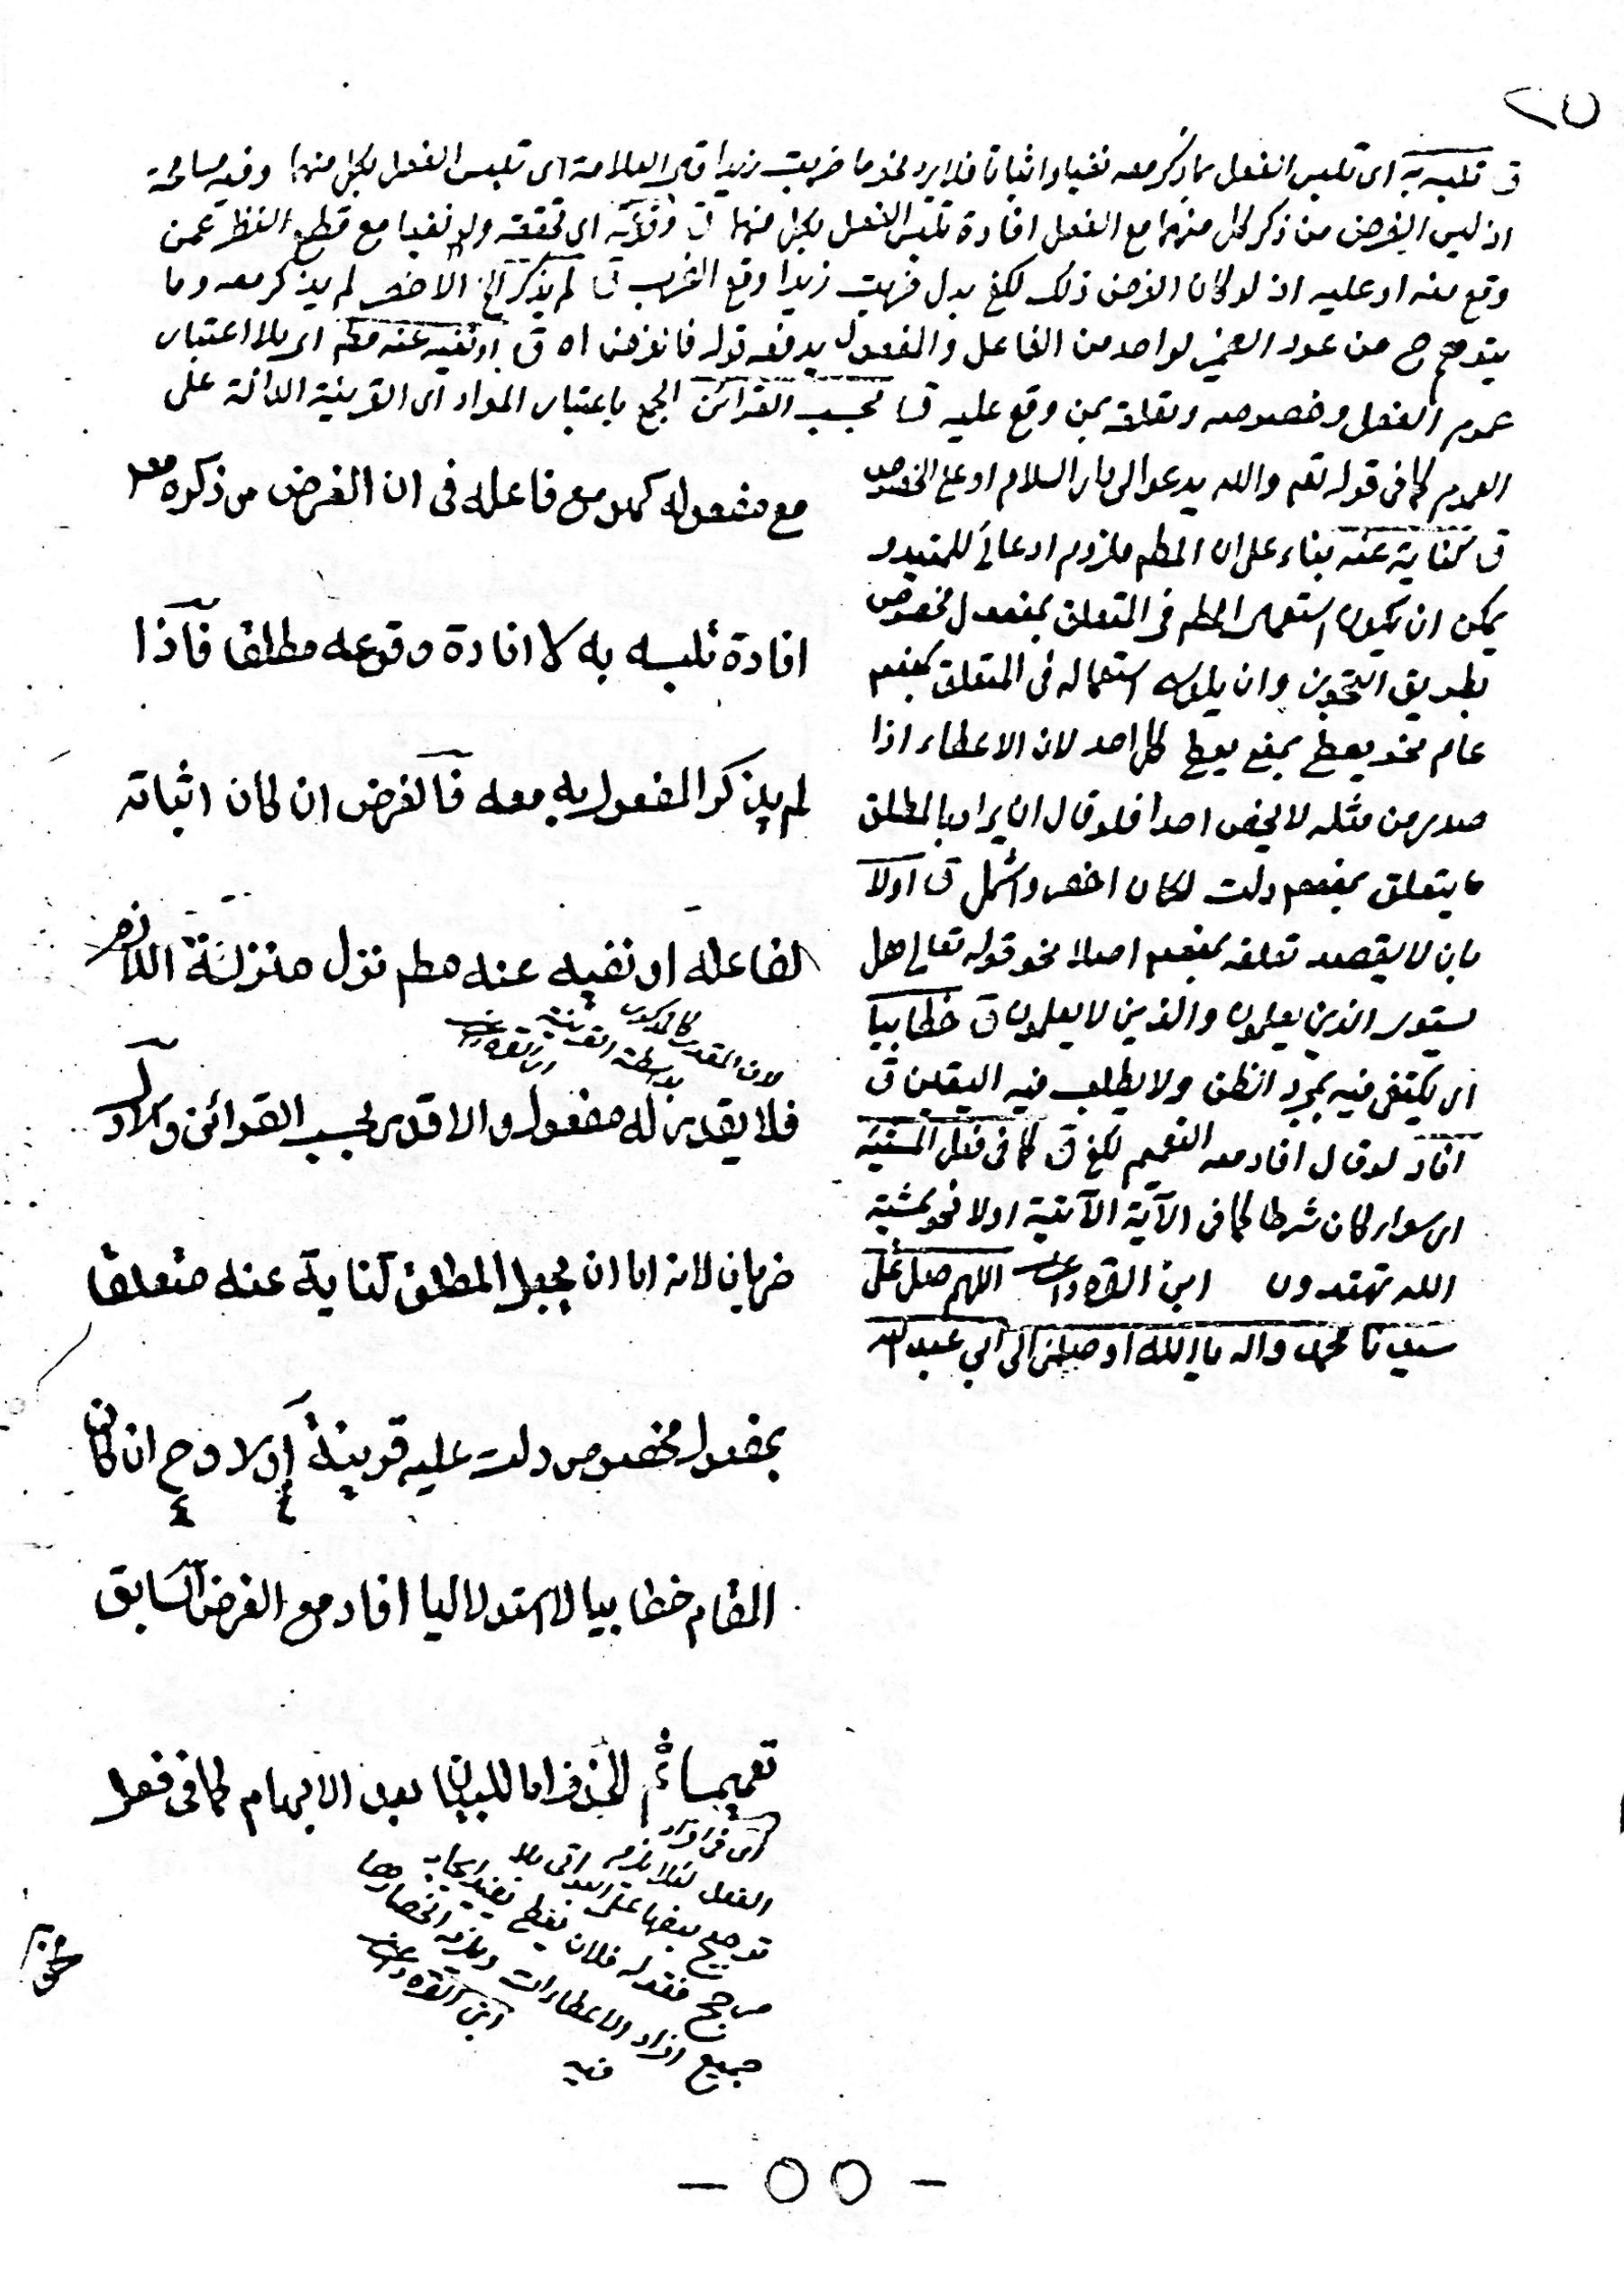 ق تلبسه به اى تلبس الفعل بما ذكر معه نفيا و اثباتا فلا يرد نحو ما ضربت زيدا قال العلامة اى تلبس الفعل بكل منهما وفيه مسامحة
اذ ليس الغرض من ذكر كل منهما مع الفعل افادة تلبس الفعل بكل منهما ق وقوعه اى تحققه ولو نفيا مع قطع النظر عمن
وقع منه او عليه اذ لو كان الغرض ذلك لكفى بدل ضربت زيدا وقع الضرب ق لم يذكر الخ الاخصر لم يذكر معه وما
يتوهم ح من عود الضمير لواحد من الفاعل والمفعول يدفعه قوله فالغرض اه ق او نفيه عنه مطم اى بلا اعتبار
عموم الفعل وخصوصه وتعلقه بمن وقع عليه ق بحسب القرائن الجمع باعتبار المواد اى القرينة الدالة على
العموم كما فى قوله تعم والله يدعو الى دار السلام او على الخصوص
ق كناية عنه بناء على ان المطم ملزوم ادعائى للمقيد و
يمكن ان يكون استعمال المطم فى المتعلق بمفعول مخصوص
بطريق التجوز وان يكون استعماله فى المتعلق بمفعم
عام نحو يعطى بمعنى يعطى كل احد لان الاعطاء اذا
صدر من مثله لا يخص احدا فلو قال ان يراد بالمطلق
ما يتعلق بمفعم دلت لكان اخصر واشمل ق اولا
بان لا يقصد تعلقه بمفعم اصلا نحو قوله تعالى هل
يستوى الذين يعلمون والذين لا يعلمون ق خطابيا
اى يكتفى فيه بمجرد الظن ولا يطلب فيه اليقين ق
افاد لو قال افاد معه التعميم لكفى ق كما فى فعل المشيئة
اى سواء كان شرطا كما فى الآية الآتية اولا نحو بمشيئة
الله تهتدون ابن القره داغى اللهم صل على
سيدنا محمد واله يا الله اوصلنى الى ابى عبد الله
مع مفعوله كهو مع فاعله فى ان الغرض من ذكره معه
افادة تلبسه به لا افادة وقوعه مطلقا فاذا
لم يذكر المفعول به معه فالغرض ان كان اثباته
لفاعله او نفيه عنه مطم نزل منزلة اللازم
لان المقدر كالمذكور
بواسطة القرينة
ابن القره داغى
فلا يقدر له مفعول والا قدر بحسب القرائن والاول
ضربان لانه اما ان يجعل المطلق كناية عنه متعلقا
بمفعول مخصوص دلت عليه قرينة اولا وح ان كان
المقام خطابيا لا استدلاليا افاد مع الغرض السابق
تعميما ثم الحذف اما للبيان بعد الابهام كما فى فعل
اى فى افراد
الفعل لئلا يلزم
ترجيح بعضها على الباقى بلا
مرجح فقوله فلان يعطى يفيد ايجاب
جميع افراد الاعطاءات ويلزمه انحصارها
فيه ابن القره داغى